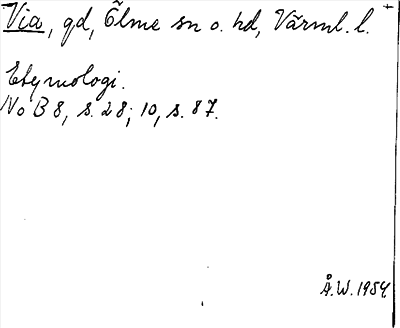 Via, gd, Ölme sn o. hd, Värml. l.
Etymologi.
No B 8, s. 28; 10, s. 87.
Å.W. 1954.